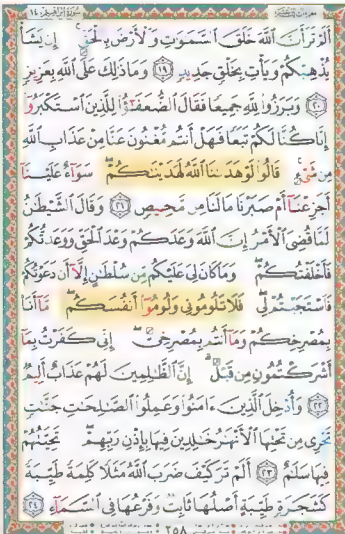 سورة إبراهيم ١٤
أَلَمْ تَرَ أَنَّ اللَّهَ خَلَقَ السَّمَٰوَٰتِ وَالْأَرْضَ بِالْحَقِّ إِن يَشَأْ
يُذْهِبْكُمْ وَيَأْتِ بِخَلْقٍ جَدِيدٍ ١٩ وَمَا ذَٰلِكَ عَلَى اللَّهِ بِعَزِيزٍ
٢٠ وَبَرَزُوا لِلَّهِ جَمِيعًا فَقَالَ الضُّعَفَٰٓؤُا لِلَّذِينَ اسْتَكْبَرُوٓا
إِنَّا كُنَّا لَكُمْ تَبَعًا فَهَلْ أَنتُم مُّغْنُونَ عَنَّا مِنْ عَذَابِ اللَّهِ
مِن شَىْءٍ قَالُوا لَوْ هَدَىٰنَا اللَّهُ لَهَدَيْنَٰكُمْ سَوَآءٌ عَلَيْنَآ
أَجَزِعْنَآ أَمْ صَبَرْنَا مَا لَنَا مِن مَّحِيصٍ ٢١ وَقَالَ الشَّيْطَٰنُ
لَمَّا قُضِىَ الْأَمْرُ إِنَّ اللَّهَ وَعَدَكُمْ وَعْدَ الْحَقِّ وَوَعَدتُّكُمْ
فَأَخْلَفْتُكُمْ وَمَا كَانَ لِىَ عَلَيْكُم مِّن سُلْطَٰنٍ إِلَّآ أَن دَعَوْتُكُمْ
فَاسْتَجَبْتُمْ لِى فَلَا تَلُومُونِى وَلُومُوٓا أَنفُسَكُم مَّآ أَنَا
بِمُصْرِخِكُمْ وَمَآ أَنتُم بِمُصْرِخِىَّ إِنِّى كَفَرْتُ بِمَآ
أَشْرَكْتُمُونِ مِن قَبْلُ إِنَّ الظَّٰلِمِينَ لَهُمْ عَذَابٌ أَلِيمٌ
٢٢ وَأُدْخِلَ الَّذِينَ ءَامَنُوا وَعَمِلُوا الصَّٰلِحَٰتِ جَنَّٰتٍ
تَجْرِى مِن تَحْتِهَا الْأَنْهَٰرُ خَٰلِدِينَ فِيهَا بِإِذْنِ رَبِّهِمْ تَحِيَّتُهُمْ
فِيهَا سَلَٰمٌ ٢٣ أَلَمْ تَرَ كَيْفَ ضَرَبَ اللَّهُ مَثَلًا كَلِمَةً طَيِّبَةً
كَشَجَرَةٍ طَيِّبَةٍ أَصْلُهَا ثَابِتٌ وَفَرْعُهَا فِى السَّمَآءِ ٢٤
٢٥٨